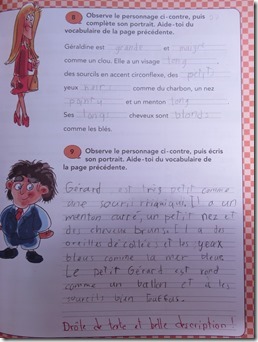 8 Observe le personnage ci-contre, puis
complète son portrait. Aide-toi du
vocabulaire de la page précédente.
Géraldine est grande et maigre
comme un clou. Elle a un visage long,
des sourcils en accent circonflexe, des petits
yeux noirs comme du charbon, un nez
pointu et un menton long.
Ses longs cheveux sont blonds
comme les blés.
9 Observe le personnage ci-contre, puis écris
son portrait. Aide-toi du vocabulaire de
la page précédente.
Gérard est très petit comme
une souris riquiqui. Il a un
menton carré, un petit nez et
des cheveux bruns. Il a des
oreilles décollées et les yeux
bleus comme la mer bleue.
Le petit Gérard est rond
comme un ballon et a les
sourcils bien touffus.
Drôle de texte et belle description !